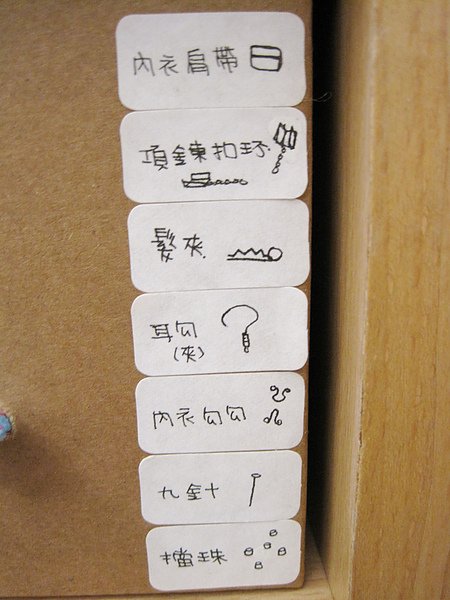 內衣肩帶
項鍊扣环
髮夾
耳勾
(夾)
內衣勾勾
九針
擋珠